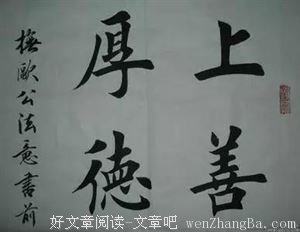 上善
厚德
橅歐公法意書前
好文章阅读-文章吧 wenZhangBa.com